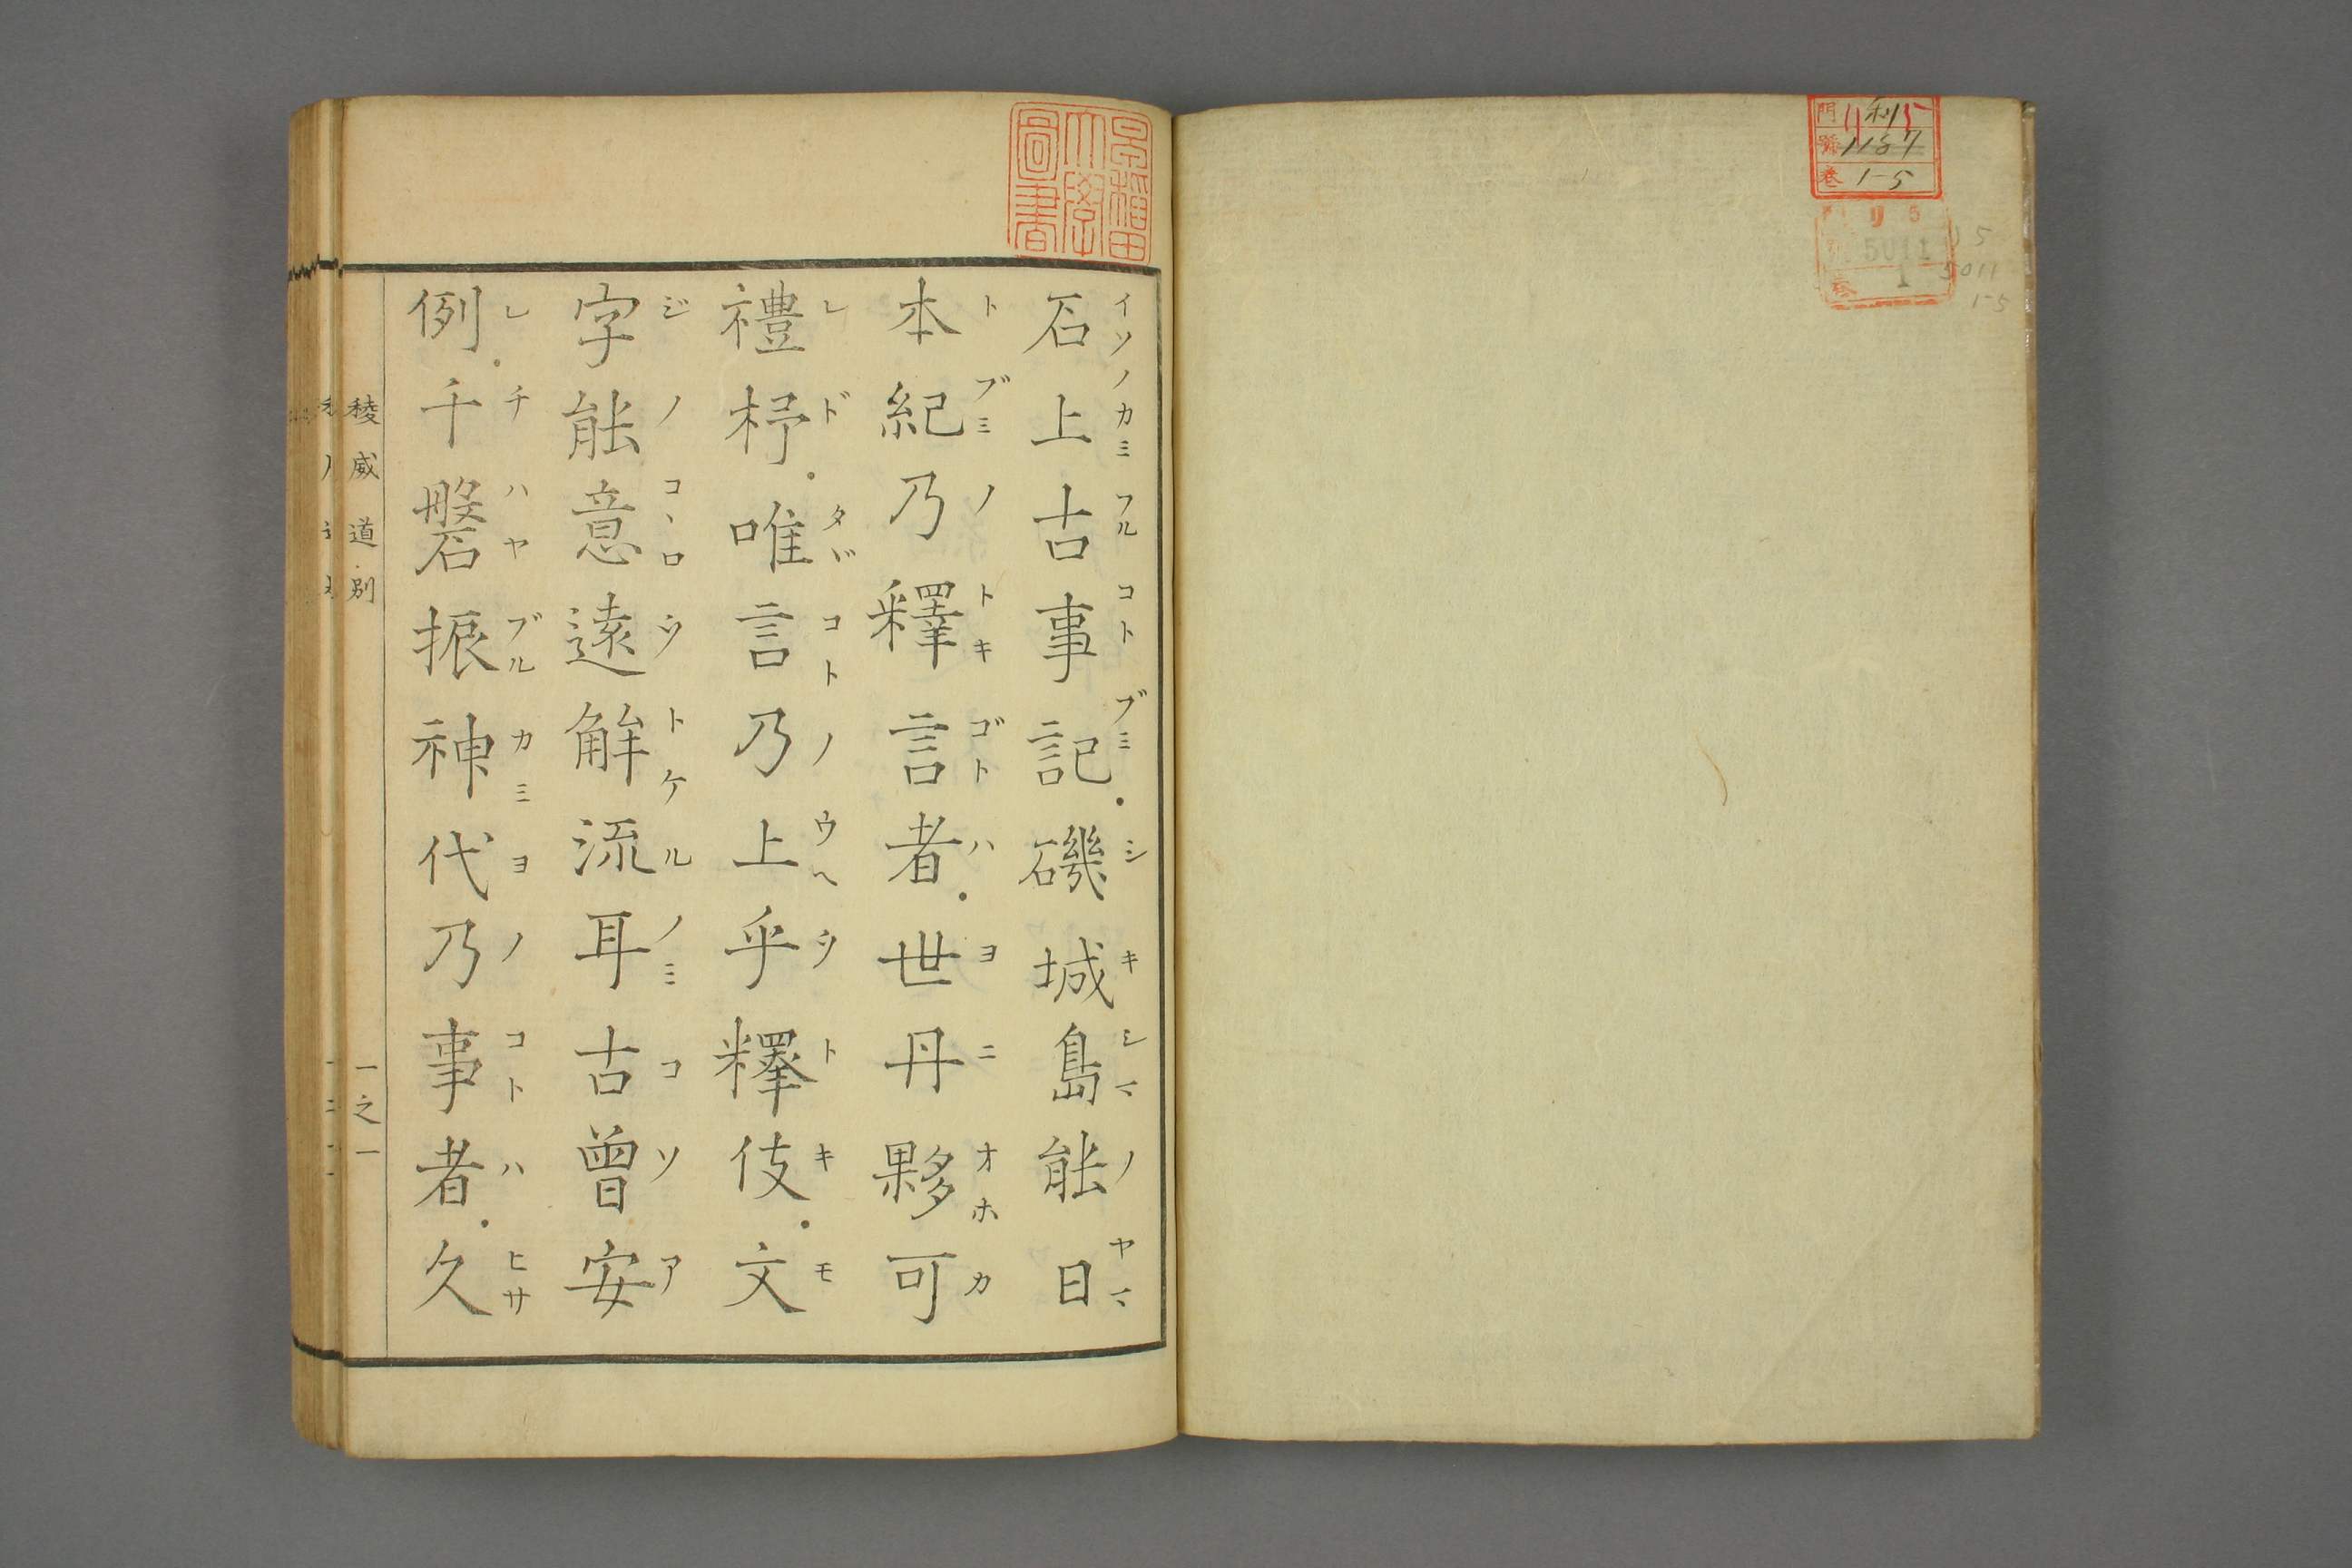 門 リ 利 5
號 1187
巻 1-5
5011
1
5
5011
1-5
早稲田
大學
圖書
石上古事記。磯城島能日
イソノカミフルコトブミ シキシマノヤマ
本紀乃釋言者。世丹夥可
トブミノトキゴトハ ヨニオホカ
禮杼。唯言乃上乎釋伎。文
レド タヾコトノウヘヲトキ モ
字能意遠解流耳古曽安
ジノコヽロヲトケルノミコソア
例。千磐振神代乃事者。久
レ チハヤブルカミヨノコトハ ヒサ
稜威道別 一之一